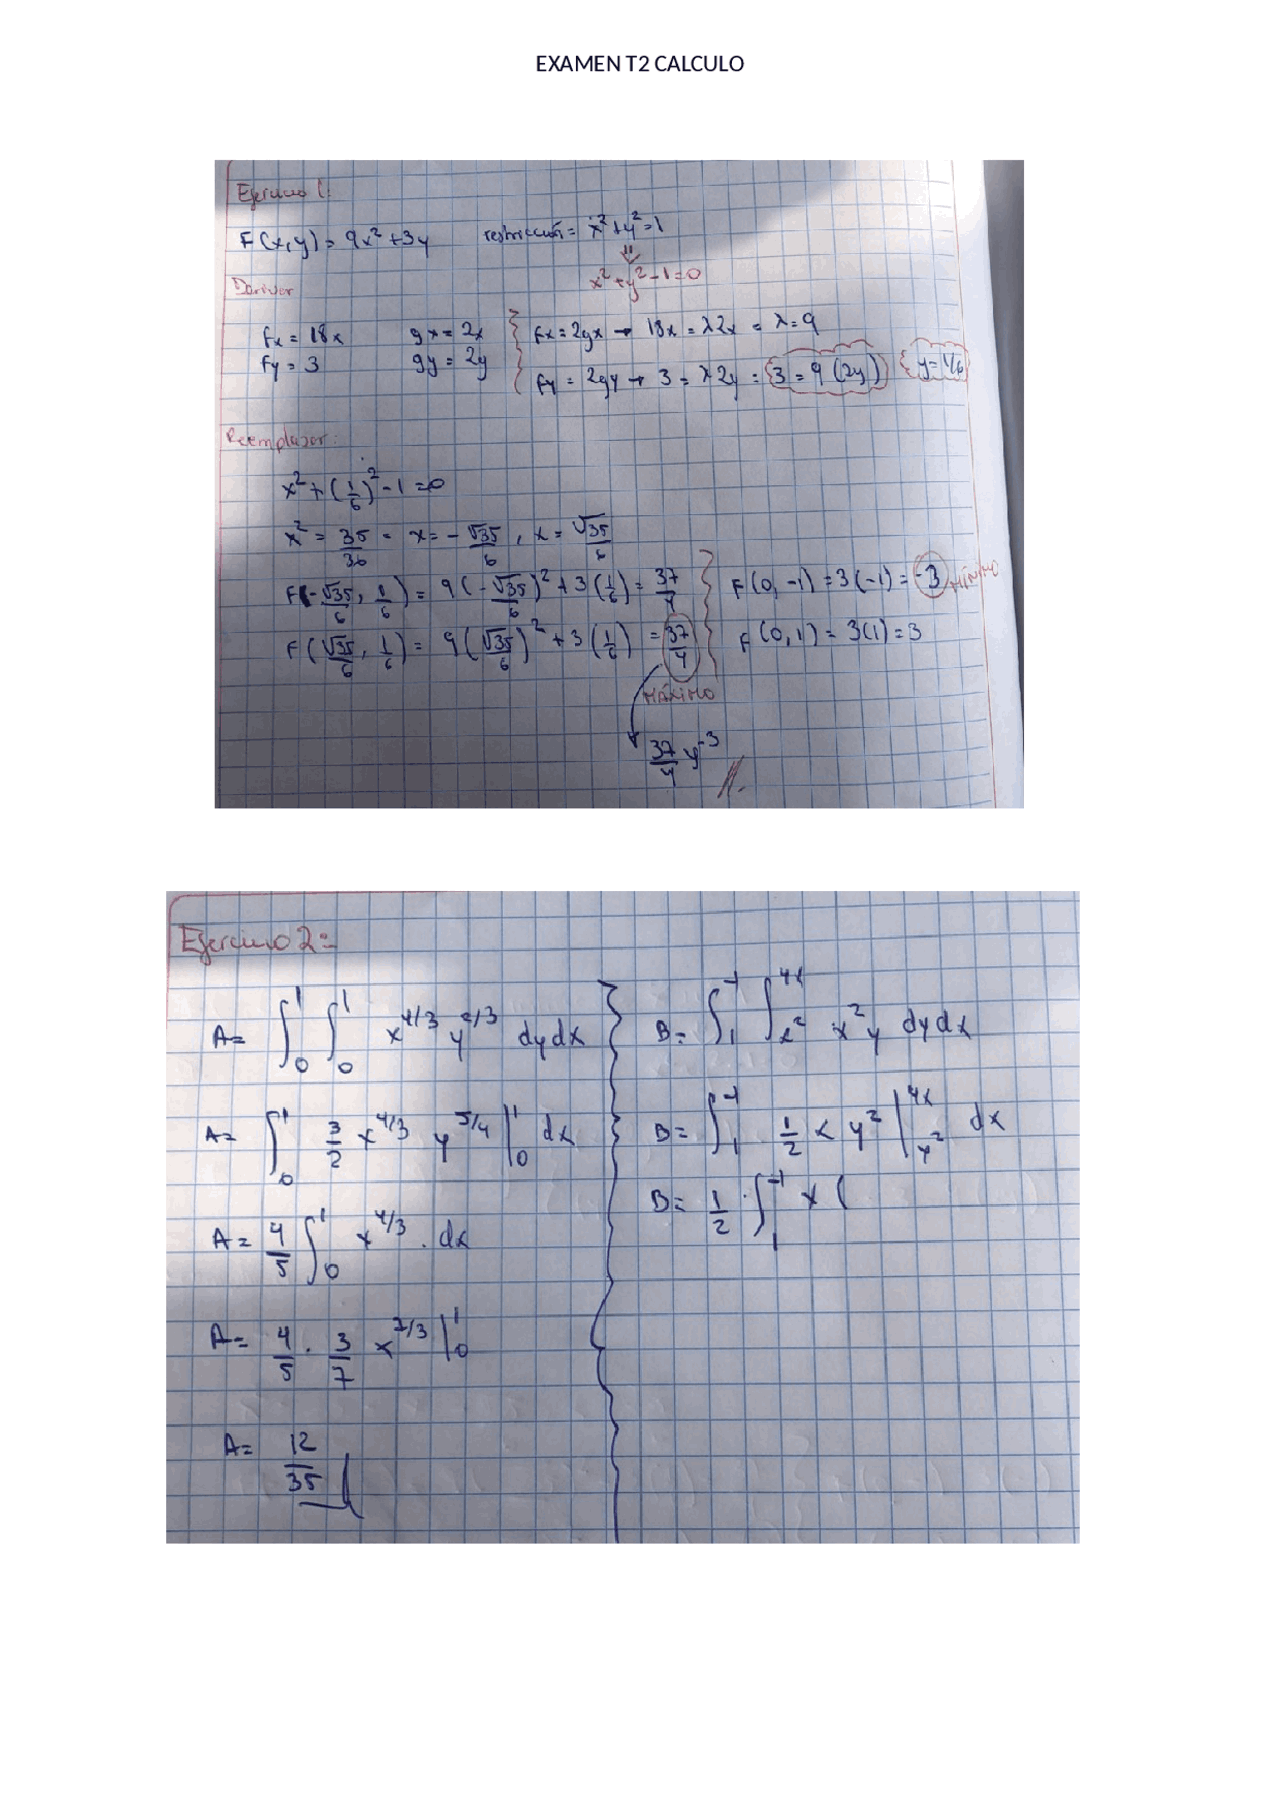 EXAMEN T2 CALCULO
Ejercicio 1:
F(x,y) = 9x² + 3y restricción = x² + y² = 1
⇓
x² + y² - 1 = 0
Derivar
fx = 18x gx = 2x } fx = 2gx → 18x = λ2x = λ = 9
fy = 3 gy = 2y } fy = 2gy → 3 = λ2y = 3 = 9(2y) } y = 1/6
Reemplazar:
x² + (1/6)² - 1 = 0
x² = 35/36 = x = - √35/6 , x = √35/6
F(-√35/6, 1/6) = 9(-√35/6)² + 3(1/6) = 37/4 } F(0, -1) = 3(-1) = -3 MÍNIMO
F(√35/6, 1/6) = 9(√35/6)² + 3(1/6) = 37/4 } F(0, 1) = 3(1) = 3
MÁXIMO
37/4 y -3
Ejercicio 2:
A = ∫₀¹ ∫₀¹ x^4/3 y^2/3 dy dx
A = ∫₀¹ 3/2 x^4/3 y^5/4 |₀¹ dx
A = 4/5 ∫₀¹ x^4/3 . dx
A = 4/5 . 3/7 x^7/3 |₀¹
A = 12/35
B = ∫₁⁻¹ ∫_x²^4x x² y dy dx
B = ∫₁⁻¹ 1/2 x y² |_x²^4x dx
B = 1/2 . ∫₁⁻¹ x (